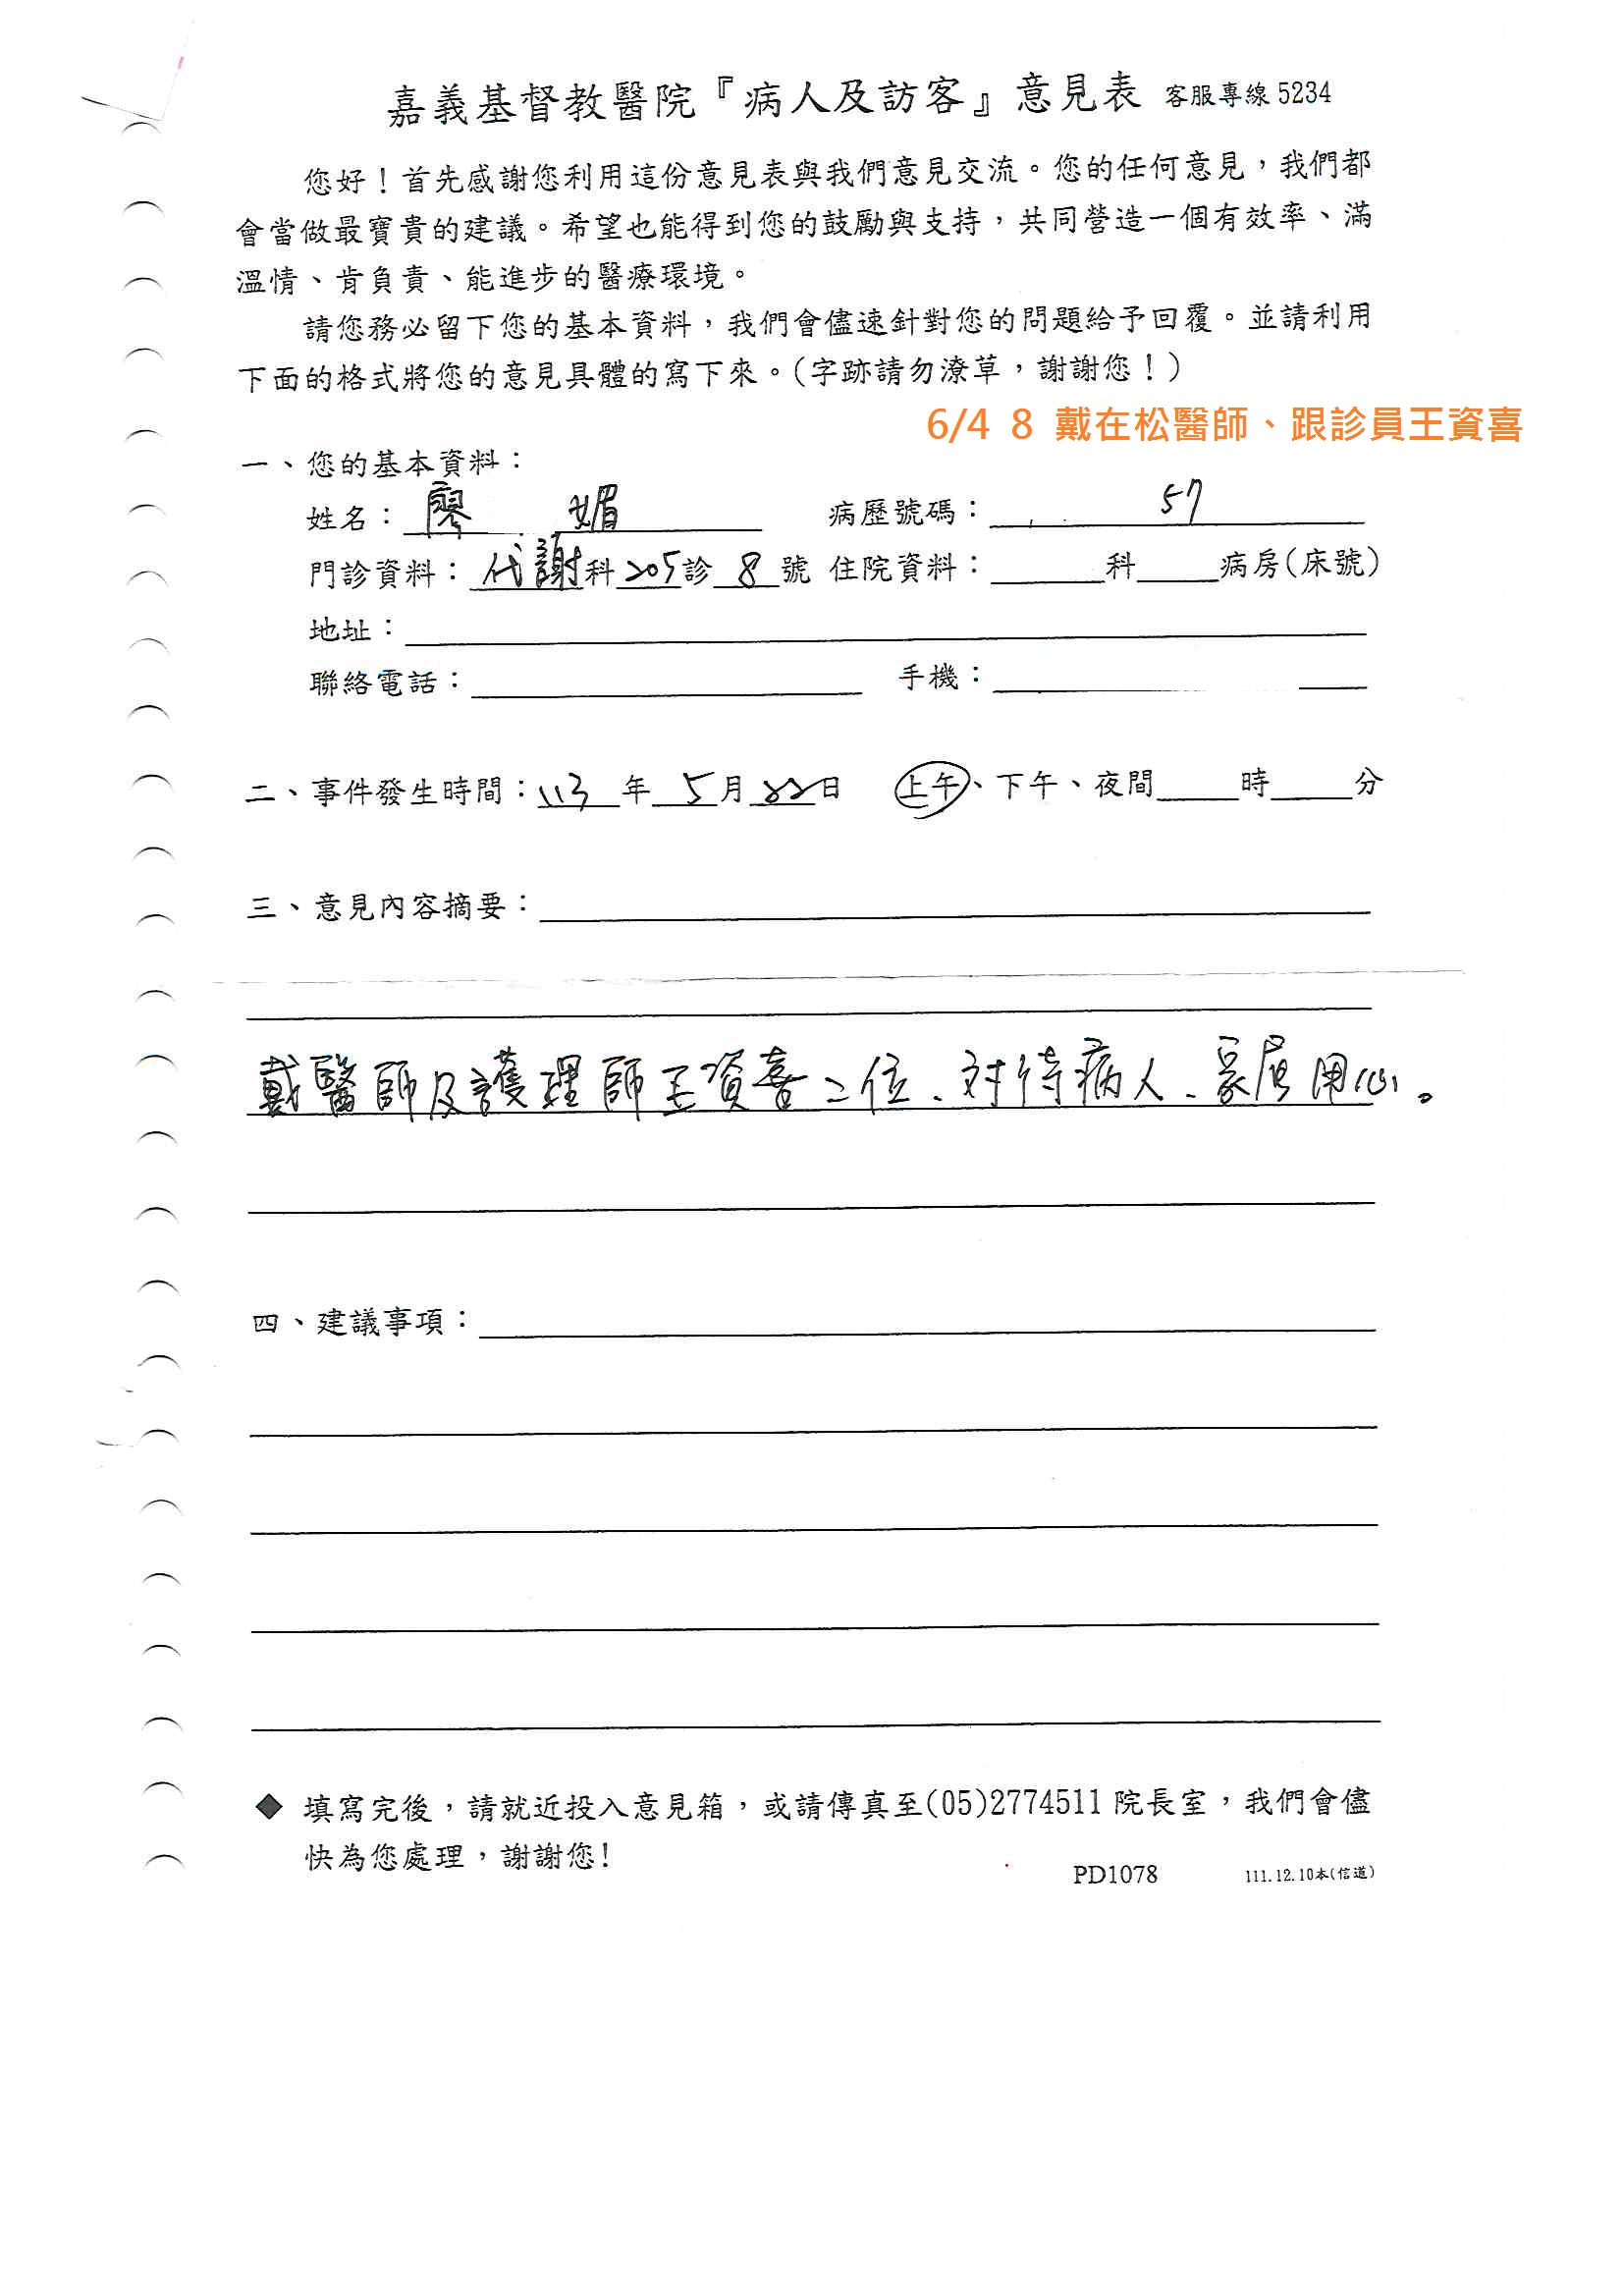 嘉義基督教醫院『病人及訪客』意見表 客服專線 5234
您好！首先感謝您利用這份意見表與我們意見交流。您的任何意見，我們都
會當做最寶貴的建議。希望也能得到您的鼓勵與支持，共同營造一個有效率、滿
溫情、肯負責、能進步的醫療環境。
請您務必留下您的基本資料，我們會儘速針對您的問題給予回覆。並請利用
下面的格式將您的意見具體的寫下來。(字跡請勿潦草，謝謝您！)
6/4 8 戴在松醫師、跟診員王資喜
一、您的基本資料：
姓名：廖 媚 病歷號碼：57
門診資料：代謝科205診8號 住院資料：科 病房(床號)
地址：
聯絡電話： 手機：
二、事件發生時間：113年5月22日 上午、下午、夜間 時 分
三、意見內容摘要：
戴醫師及護理師王資喜二位、対待病人、家属用心。
四、建議事項：
◆ 填寫完後，請就近投入意見箱，或請傳真至(05)2774511院長室，我們會儘
快為您處理，謝謝您!
PD1078 111.12.10本(信道)